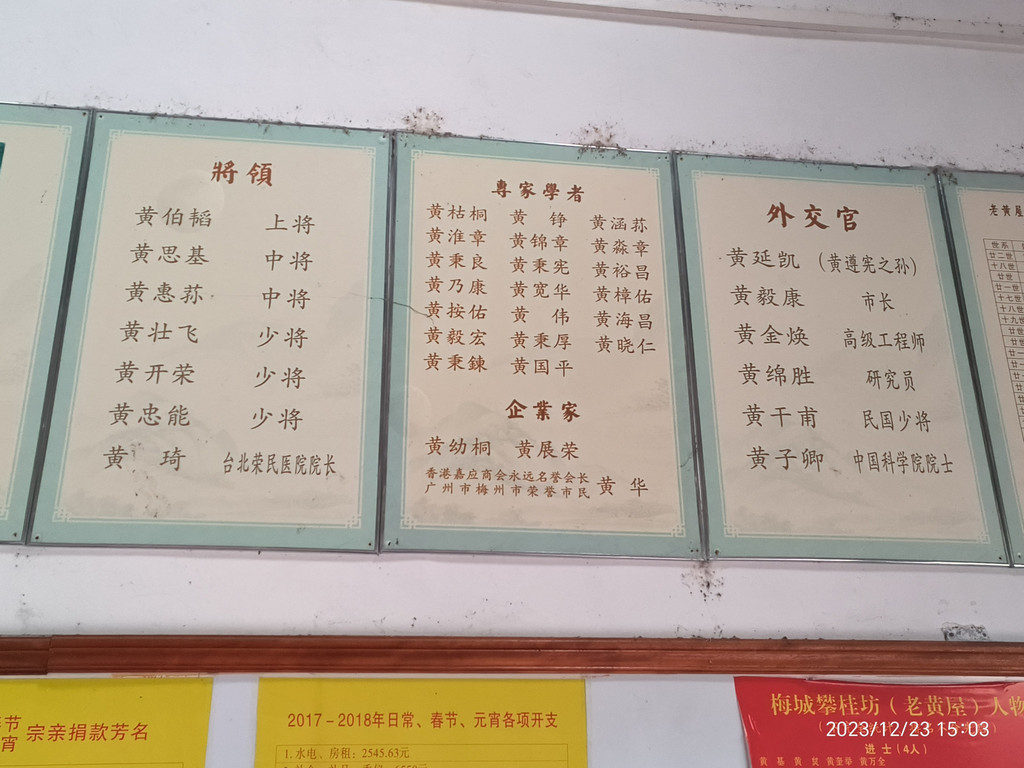 將領
黄伯韬 上将
黄思基 中将
黄惠荪 中将
黄壮飞 少将
黄开荣 少将
黄忠能 少将
黄 琦 台北荣民医院院长
專家學者
黄枯桐 黄 铮 黄涵荪
黄淮章 黄锦章 黄淼章
黄秉良 黄秉宪 黄裕昌
黄乃康 黄宽华 黄樟佑
黄按佑 黄 伟 黄海昌
黄毅宏 黄秉厚 黄晓仁
黄秉鍊 黄国平
企業家
黄幼桐 黄展荣
香港嘉应商会永远名誉会长
广州市梅州市荣誉市民 黄 华
外交官
黄延凯 (黄遵宪之孙)
黄毅康 市长
黄金焕 高级工程师
黄绵胜 研究员
黄干甫 民国少将
黄子卿 中国科学院院士
老黄屋
世系
廿二世
十八世
廿世
廿一世
十七世
十八世
十九世
宗亲捐款芳名
2017-2018年日常、春节、元宵各项开支
1. 水电、房租: 2545.63元
梅城攀桂坊(老黄屋)人物
2023/12/23 15:03
进士(4人)
黄基 黄 黄